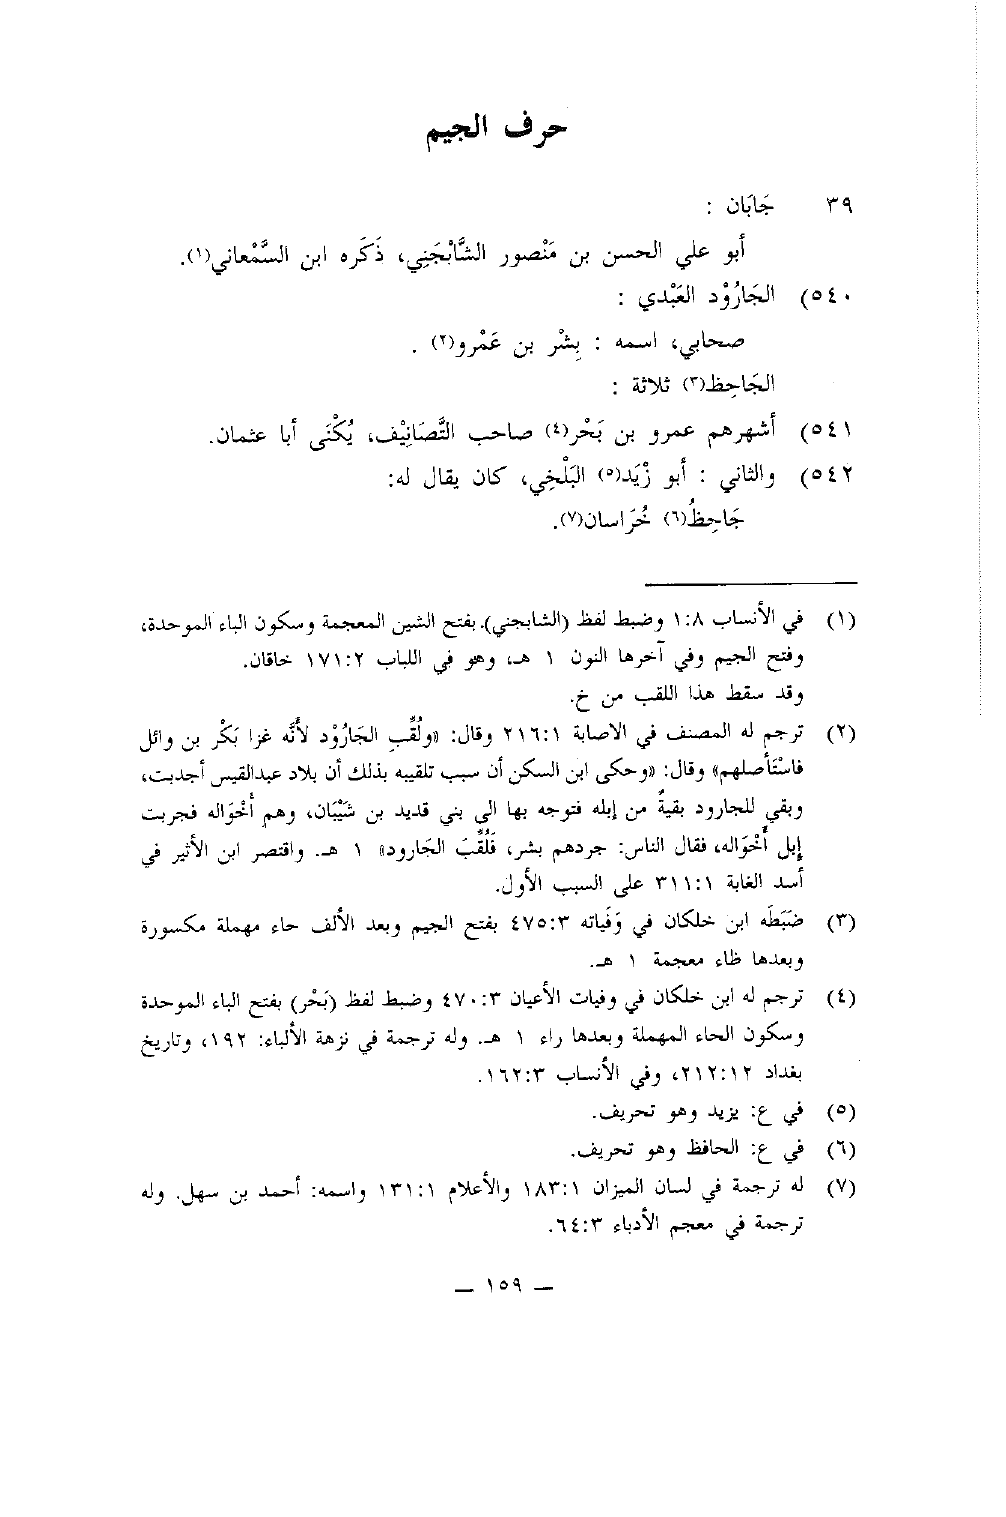 حرف الجيم
٣٩ جَابَان :
أبو علي الحسن بن مَنْصور الشَّابْجَنِي، ذَكَره ابن السَّمْعاني(١).
٥٤٠) الجَارُوْد العَبْدي :
صحابي، اسمه : بِشْر بن عَمْرو(٢) .
الجَاحِظ(٣) ثلاثة :
٥٤١) أشهرهم عمرو بن بَحْر(٤) صاحب التَّصَانِيْف، يُكْنَى أبا عثمان.
٥٤٢) والثاني : أبو زَيْد(٥) البَلْخِي، كان يقال له:
جَاحِظُ(٦) خُرَاسان(٧).
(١) في الأنساب ١:٨ وضبط لفظ (الشابجني). بفتح الشين المعجمة وسكون الباء الموحدة،
وفتح الجيم وفي آخرها النون ١ هـ، وهو في اللباب ١٧١:٢ خاقان.
وقد سقط هذا اللقب من خ.
(٢) ترجم له المصنف في الاصابة ٢١٦:١ وقال: «ولُقِّب الجَارُوْد لأنَّه غزا بَكْر بن وائل
فاسْتَأصلهم» وقال: «وحكى ابن السكن أن سبب تلقيبه بذلك أن بلاد عبدالقيس أجدبت،
وبقي للجارود بقيةٌ من إبله فتوجه بها الى بني قديد بن شَيْبَان، وهم أخْوَاله فجربت
إبل أخْوَاله، فقال الناس: جردهم بشر، فَلُقِّبَ الجَارود» ١ هـ. واقتصر ابن الأثير في
أسد الغابة ٣١١:١ على السبب الأول.
(٣) ضَبَطَه ابن خلكان في وَفَياته ٤٧٥:٣ بفتح الجيم وبعد الألف حاء مهملة مكسورة
وبعدها ظاء معجمة ١ هـ.
(٤) ترجم له ابن خلكان في وفيات الأعيان ٤٧٠:٣ وضبط لفظ (بَحْر) بفتح الباء الموحدة
وسكون الحاء المهملة وبعدها راء ١ هـ. وله ترجمة في نزهة الألباء: ١٩٢، وتاريخ
بغداد ٢١٢:١٢، وفي الأنساب ١٦٢:٣.
(٥) في ع: يزيد وهو تحريف.
(٦) في ع: الحافظ وهو تحريف.
(٧) له ترجمة في لسان الميزان ١٨٣:١ والأعلام ١٣١:١ واسمه: أحمد بن سهل. وله
ترجمة في معجم الأدباء ٦٤:٣.
— ١٥٩ —